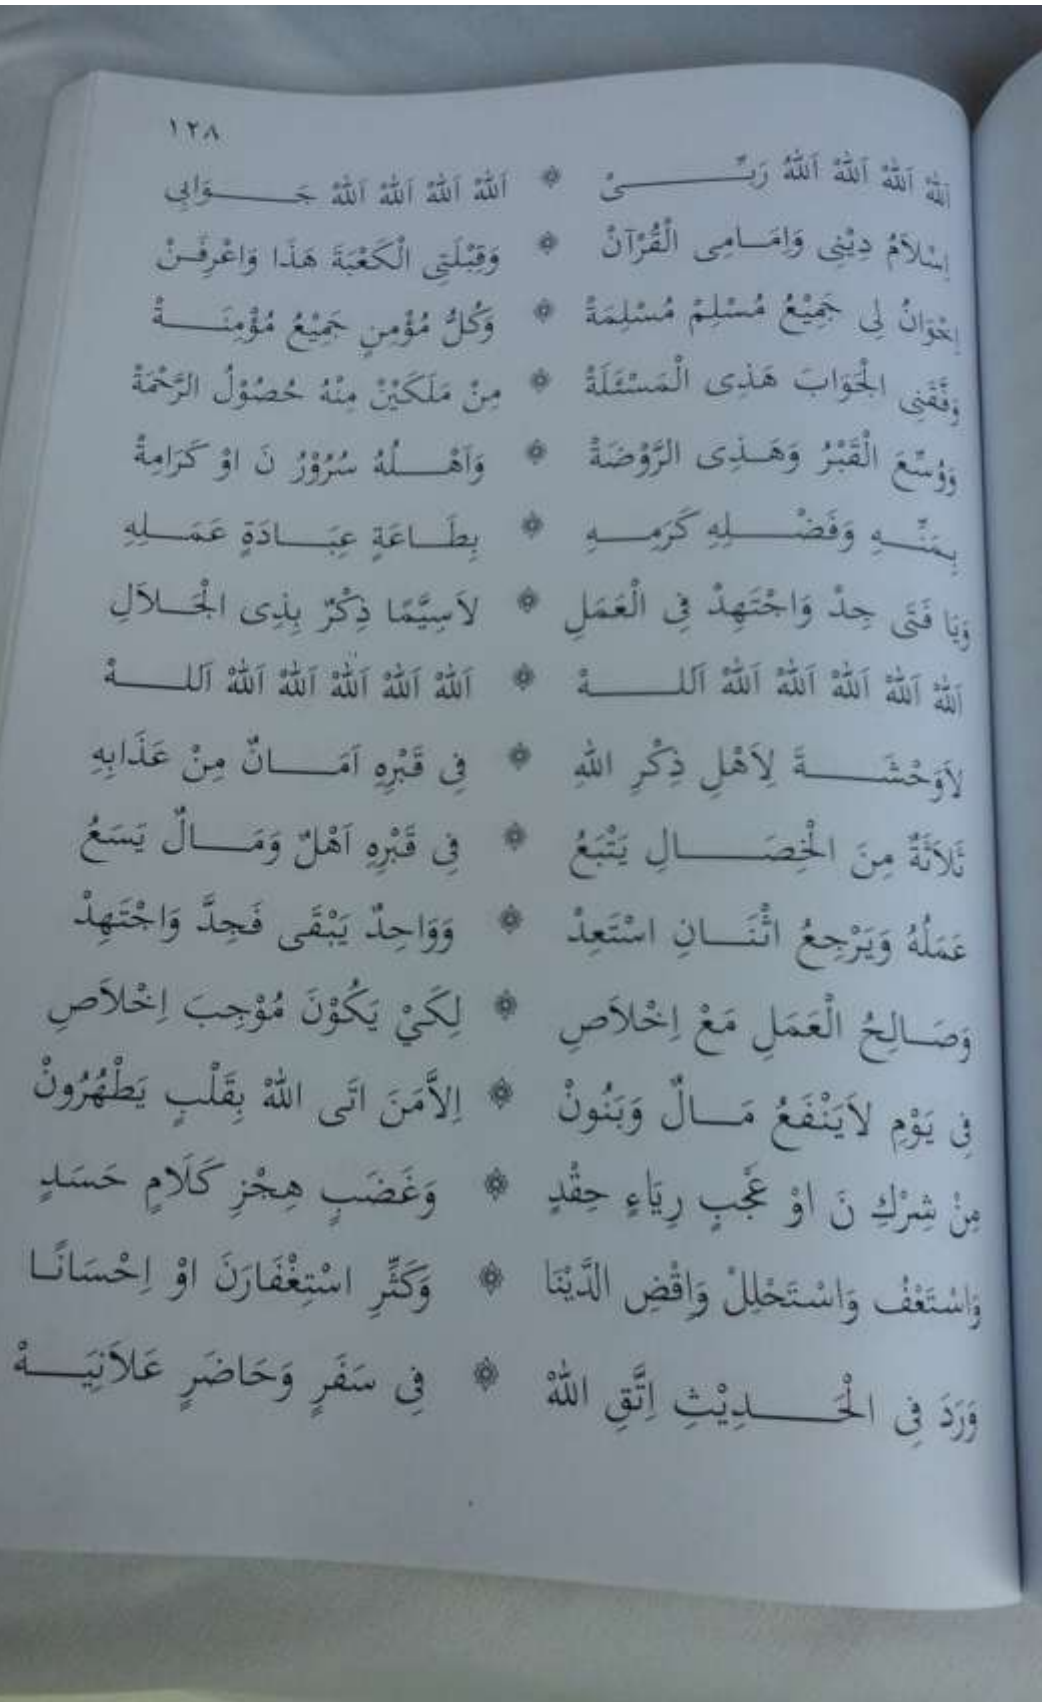 ١٢٨
اَللهُ اَللهُ اَللهُ اَللهُ رَبِّـــىْ ۞ اَللهُ اَللهُ اَللهُ اَللهُ جَـــوَابِى
اِسْلاَمُ دِيْنِى وَاِمَـامِى الْقُرْآنْ ۞ وَقِبْلَتِى الْكَعْبَةَ هَذَا وَاعْرِفَـنْ
اِخْوَانُ لِى جَمِيْعُ مُسْلِمْ مُسْلِمَةْ ۞ وَكُلُّ مُؤْمِنٍ جَمِيْعُ مُؤْمِنَـــةْ
وَفَّقَنِى الْجَوَابَ هَذِى الْمَسْئَلَةْ ۞ مِنْ مَلَكَيْنْ مِنْهُ حُصُوْلُ الرَّحْمَةْ
وَوُسِّعَ الْقَبْرُ وَهَـذِى الرَّوْضَةْ ۞ وَاَهْــلُهُ سُرُوْرُ نَ اوْ كَرَامِةْ
بِمَنِّــهِ وَفَضْــلِهِ كَرَمِــهِ ۞ بِطَـاعَةِ عِبَــادَةٍ عَمَــلِهِ
وَيَا فَتَى جِدْ وَاجْتَهِدْ فِى الْعَمَلِ ۞ لاَسِيَّمَا ذِكْرٌ بِذِى الْجَـلاَلِ
اَللهْ اَللهْ اَللهْ اَللهْ اَللهْ اَللــــهْ ۞ اَللهْ اَللهْ اَللهْ اَللهْ اَللهْ اَللــــهْ
لاَوَحْشَــــةَ لِاَهْلِ ذِكْرِ اللهِ ۞ فِى قَبْرِهِ اَمَــــانٌ مِنْ عَذَابِهِ
ثَلاَثَةٌ مِنَ الْخِصَــــالِ يَتْبَعُ ۞ فِى قَبْرِهِ اَهْلٌ وَمَــالٌ يَسَعُ
عَمَلُهُ وَيَرْجِعُ اثْنَــانِ اسْتَعِدْ ۞ وَوَاحِدٌ يَبْقَى فَجِدَّ وَاجْتَهِدْ
وَصَـالِحُ الْعَمَلِ مَعْ اِخْلاَصِ ۞ لِكَيْ يَكُوْنَ مُوْجِبَ اِخْلاَصِ
فِى يَوْمِ لاَيَنْفَعُ مَــالٌ وَبَنُونْ ۞ اِلاَّمَنَ اتَى اللهْ بِقَلْبٍ يَطْهُرُونْ
مِنْ شِرْكِ نَ اوْ عُجْبٍ رِيَاءٍ حِقْدٍ ۞ وَغَضَبٍ هِجْزِ كَلَامٍ حَسَدٍ
وَاسْتَعْفُ وَاسْتَحْلِلْ وَاقْضِ الدَّيْنَا ۞ وَكَثِّرِ اسْتِغْفَارَنَ اوْ اِحْسَانًـا
وَرَدَ فِى الْحَــــدِيْثِ اِتَّقِ اللهْ ۞ فِى سَفَرٍ وَحَاضَرٍ عَلاَنِيَـــهْ